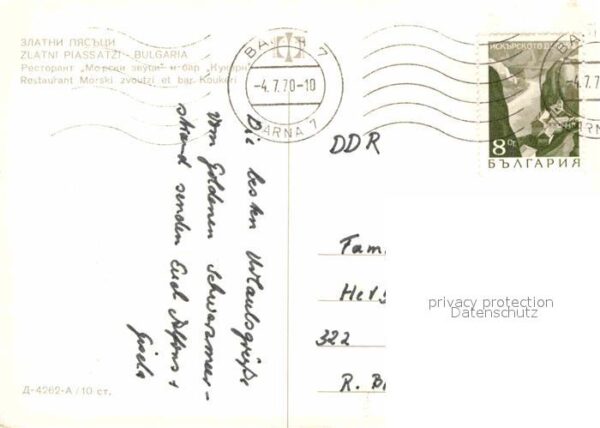 ЗЛАТНИ ПЯСЪЦИ
ZLATNI PIASSATZI - BULGARIA
Ресторант „Морски звуци" и бар „Кукери"
Restaurant Morski zvoutzi et bar Koukeri
ВАРНА 7
-4.7.70-10
VARNA 7
ИСКЪРСКОТО
8 ст.
БЪЛГАРИЯ
-4.7.7
Die besten Urlaubsgrüße
vom Goldenen Schwarzmeer-
strand senden Euch Alfons +
Gisela
DDR
Fam
322
R. B
privacy protection
Datenschutz
Д-4262-А / 10 ст.